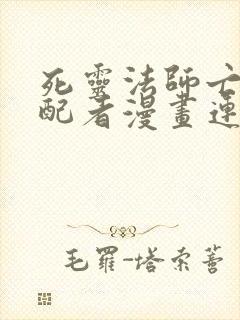 死靈法師亡
配者漫畫連
毛羅-塔索蒈